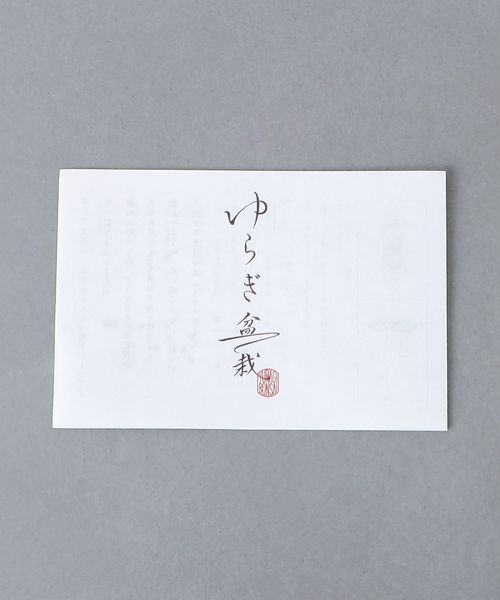 ゆらぎ盆栽